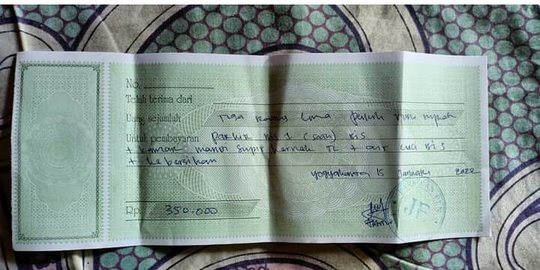 No.
Telah terima dari
Uang sejumlah Tiga Ratus Lima Puluh ribu rupiah
Untuk pembayaran Parkir bis 1 (satu) bis
+ kamar mandi supir kernek TL + air cuci bis
+ kebersihan
Yogyakarta 15 2022
Rp. 350.000
JF